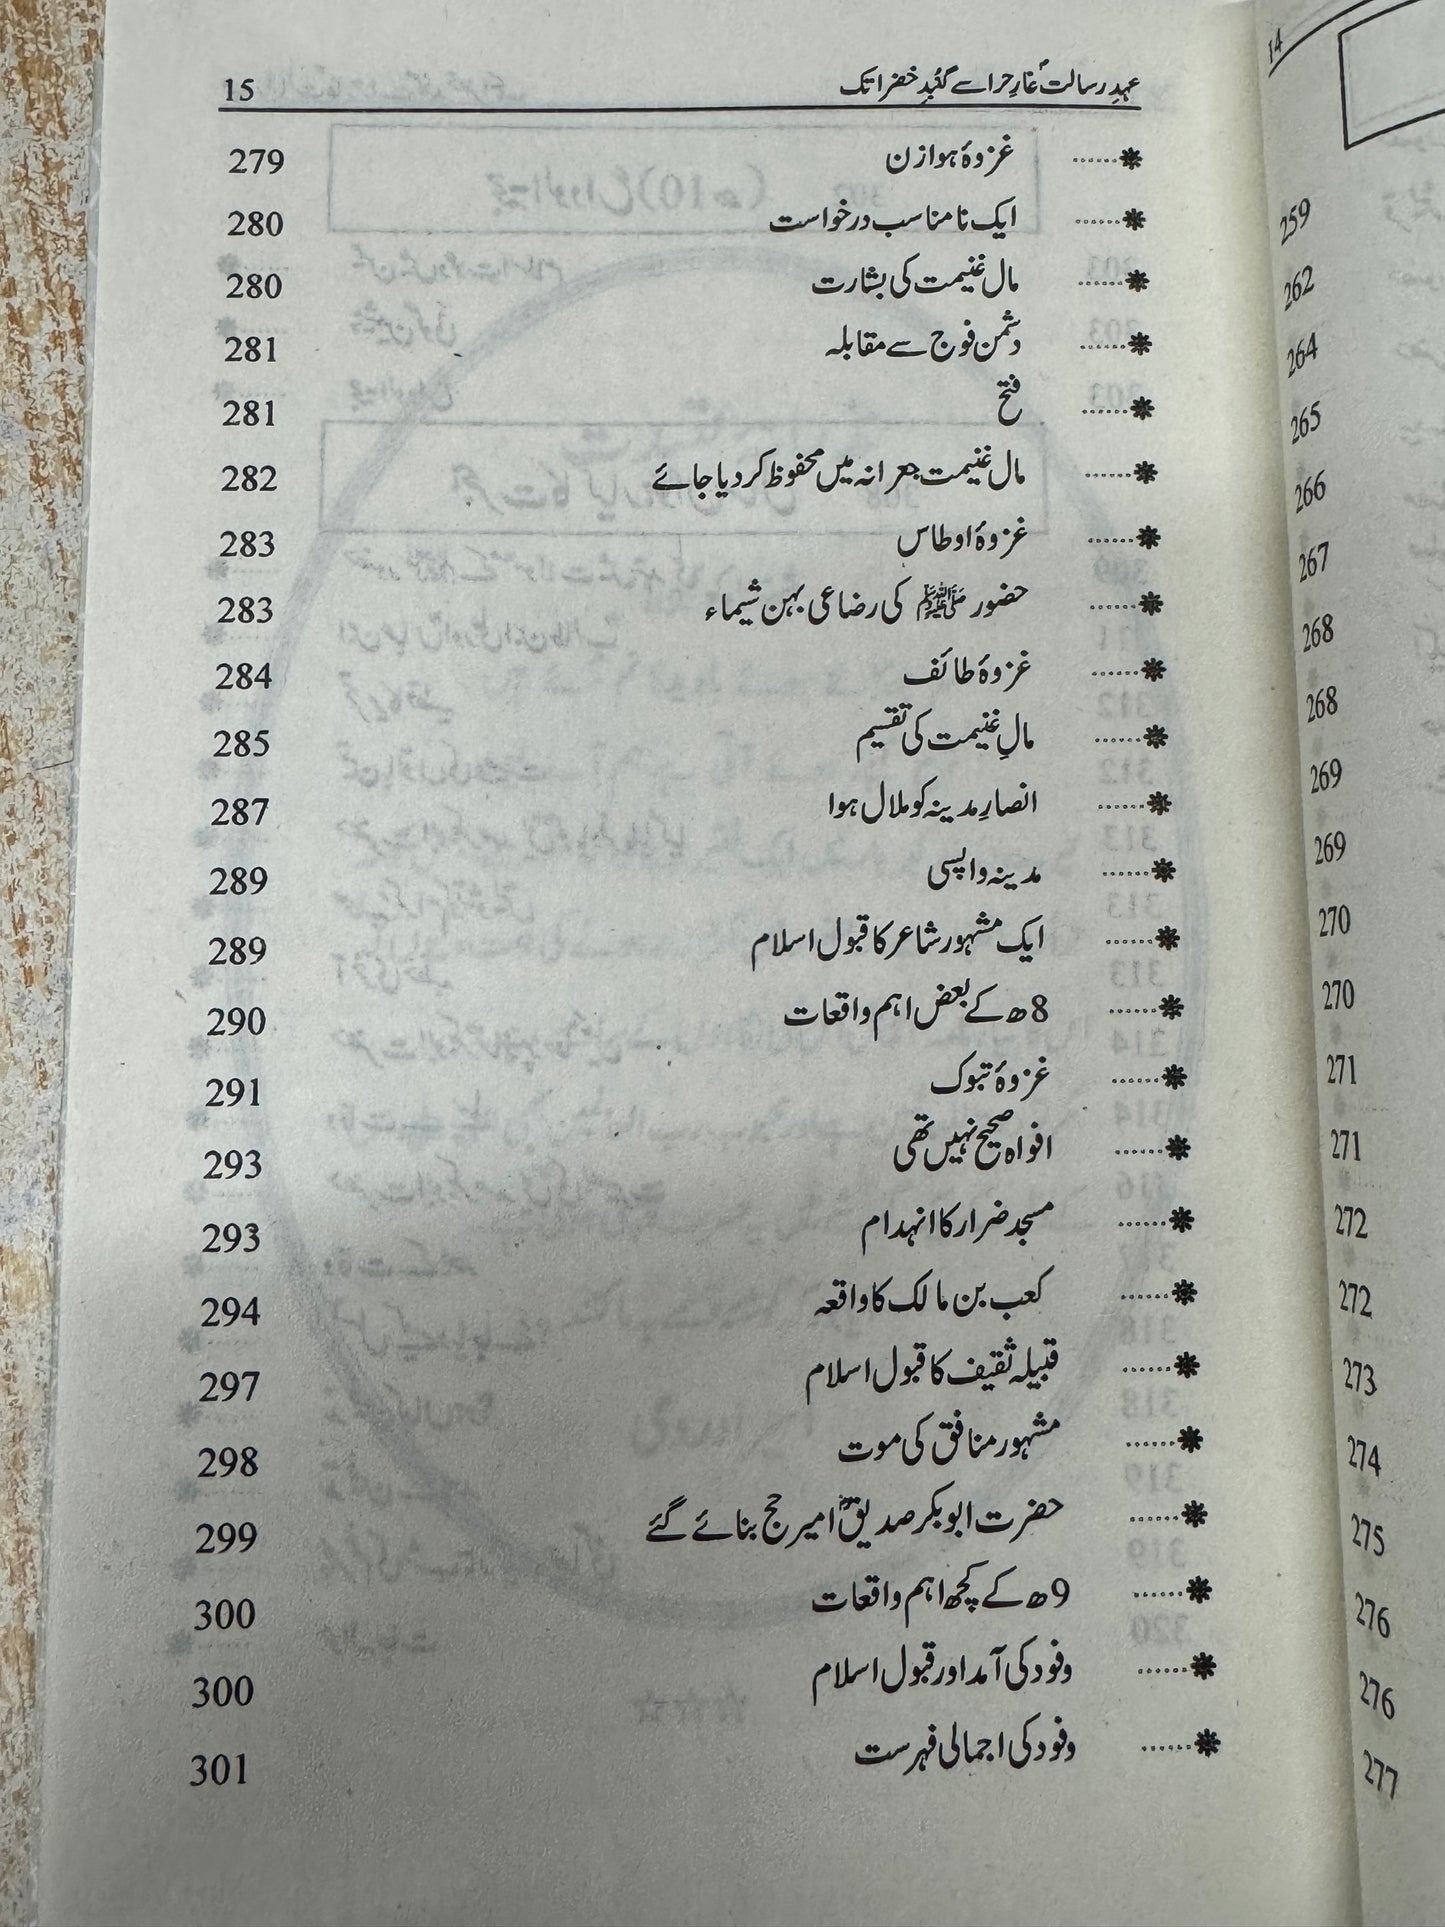 عہدِ رسالتؐ غارِ حرا سے گنبدِ خضرا تک 15
غزوۂ ہوازن 279
ایک نامناسب درخواست 280
مال غنیمت کی بشارت 280
دشمن فوج سے مقابلہ 281
فتح 281
مال غنیمت جعرانہ میں محفوظ کر دیا جائے 282
غزوۂ اوطاس 283
حضور ﷺ کی رضاعی بہن شیماء 283
غزوۂ طائف 284
مالِ غنیمت کی تقسیم 285
انصارِ مدینہ کو ملال ہوا 287
مدینہ واپسی 289
ایک مشہور شاعر کا قبول اسلام 289
8ھ کے بعض اہم واقعات 290
غزوۂ تبوک 291
افواہ صحیح نہیں تھی 293
مسجد ضرار کا انہدام 293
کعب بن مالک کا واقعہ 294
قبیلہ ثقیف کا قبول اسلام 297
مشہور منافق کی موت 298
حضرت ابوبکر صدیقؓ امیر حج بنائے گئے 299
9ھ کے کچھ اہم واقعات 300
وفود کی آمد اور قبول اسلام 300
وفود کی اجمالی فہرست 301
14
259
262
264
265
266
267
268
268
269
269
270
270
271
271
272
272
273
274
275
276
276
277